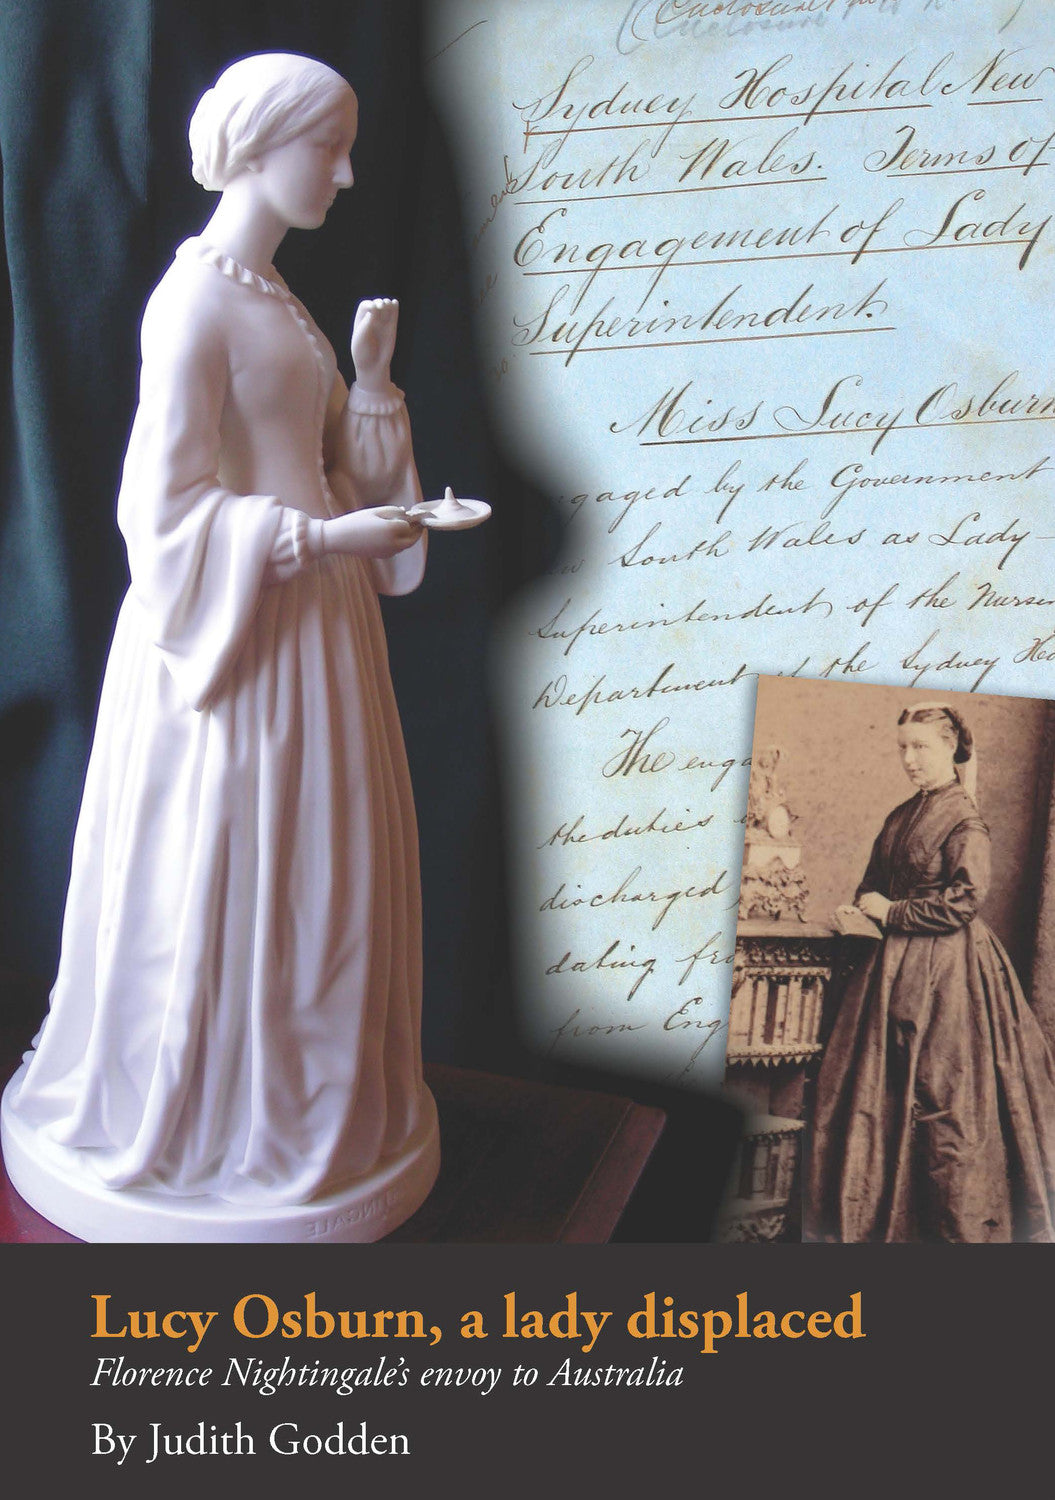 Sydney Hospital New
South Wales. Terms of
Engagement of Lady
Superintendent.
Miss Lucy Osburn
gaged by the Government
South Wales as Lady
Superintendent of the Nursin
Department of the Sydney Ho
The enga
the duties
discharged
dating fro
from Eng
Lucy Osburn, a lady displaced
Florence Nightingale's envoy to Australia
By Judith Godden